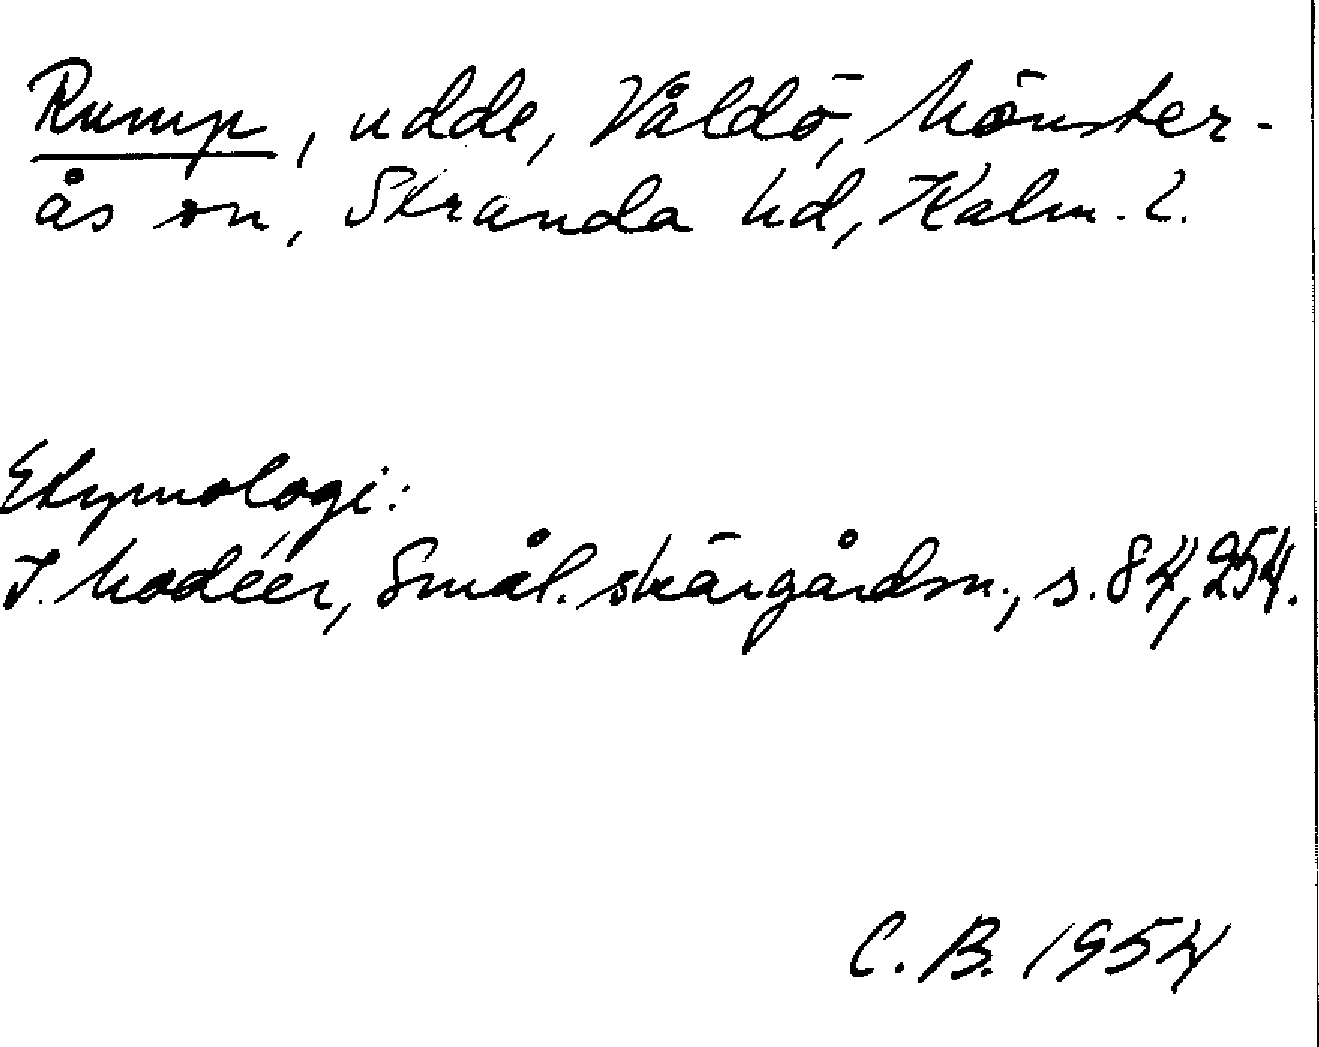 Rump, udde, Våldö, Mönster-
ås sn, Stranda hd, Kalm. l.
Etymologi:
I. Modéer, Smål. skärgårdsn., s. 84, 254.
C. B. 1954